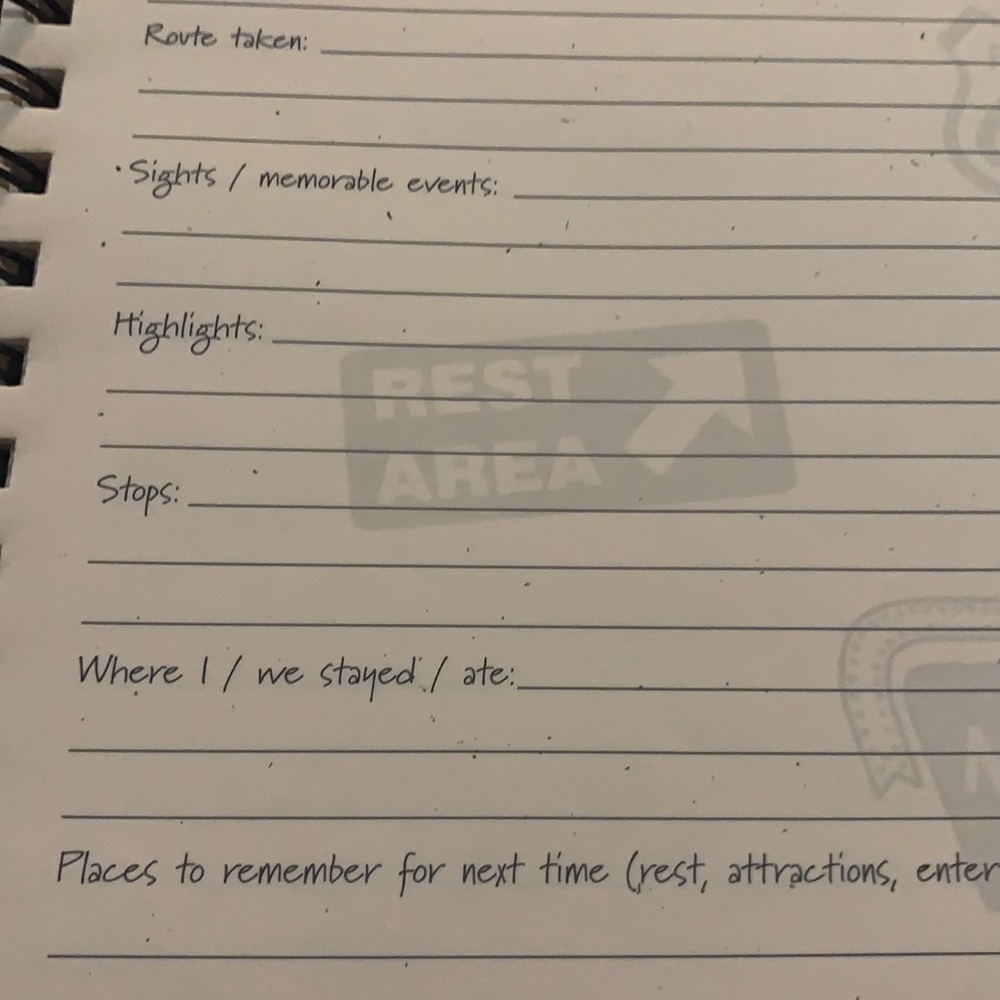 Route taken:
Sights / memorable events:
Highlights:
REST
AREA
Stops:
Where I / we stayed / ate:
Places to remember for next time (rest, attractions, enter